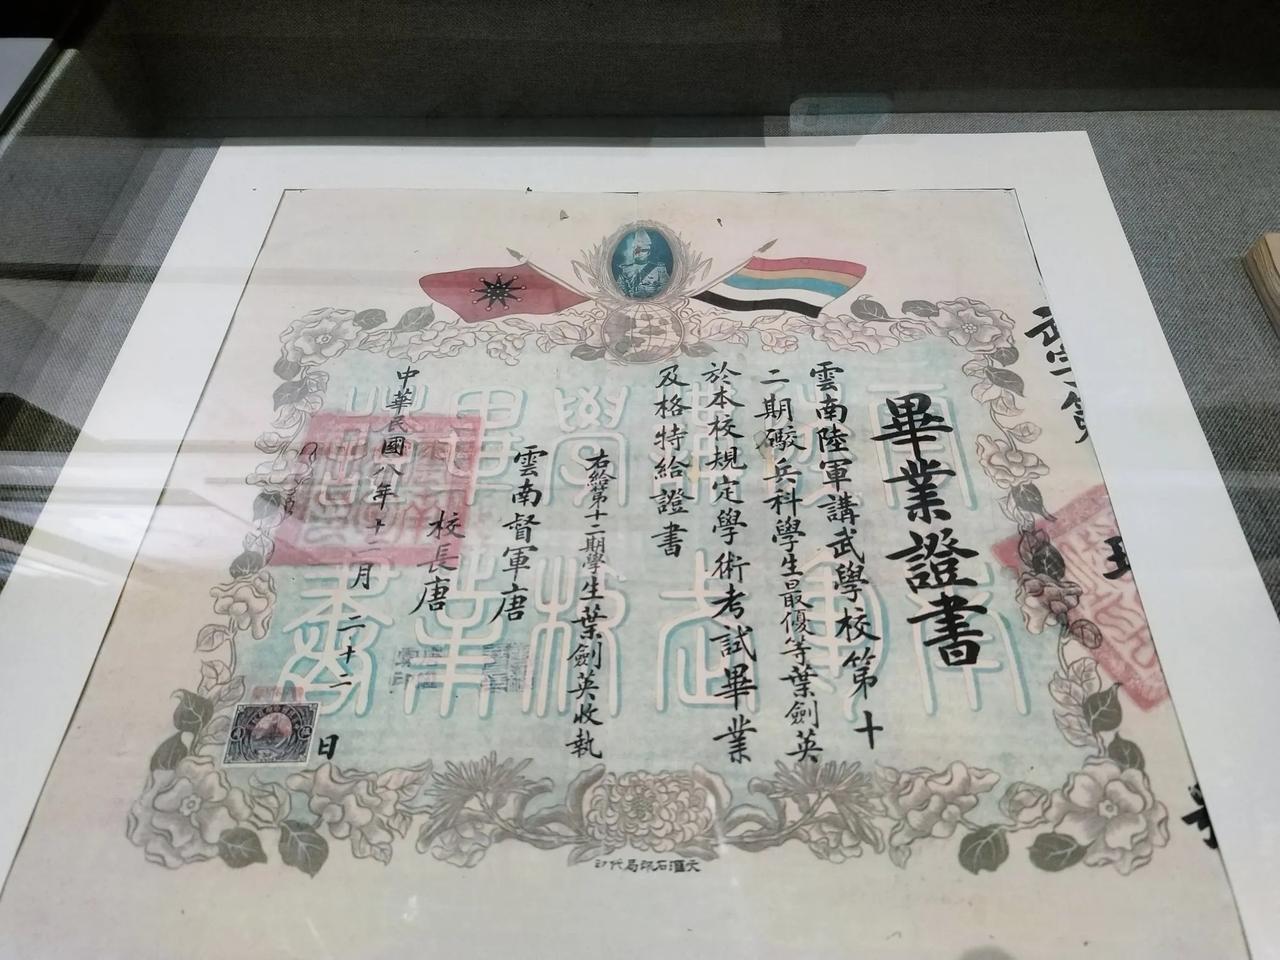 畢業證書
雲南陸軍講武學校第十
二期礮兵科學生最優等葉劍英
於本校規定學術考試畢業
及格特給證書
右給第十二期學生葉劍英收執
雲南督軍唐
校長唐
中華民國八年十二月二十二日
天滙石印局代印